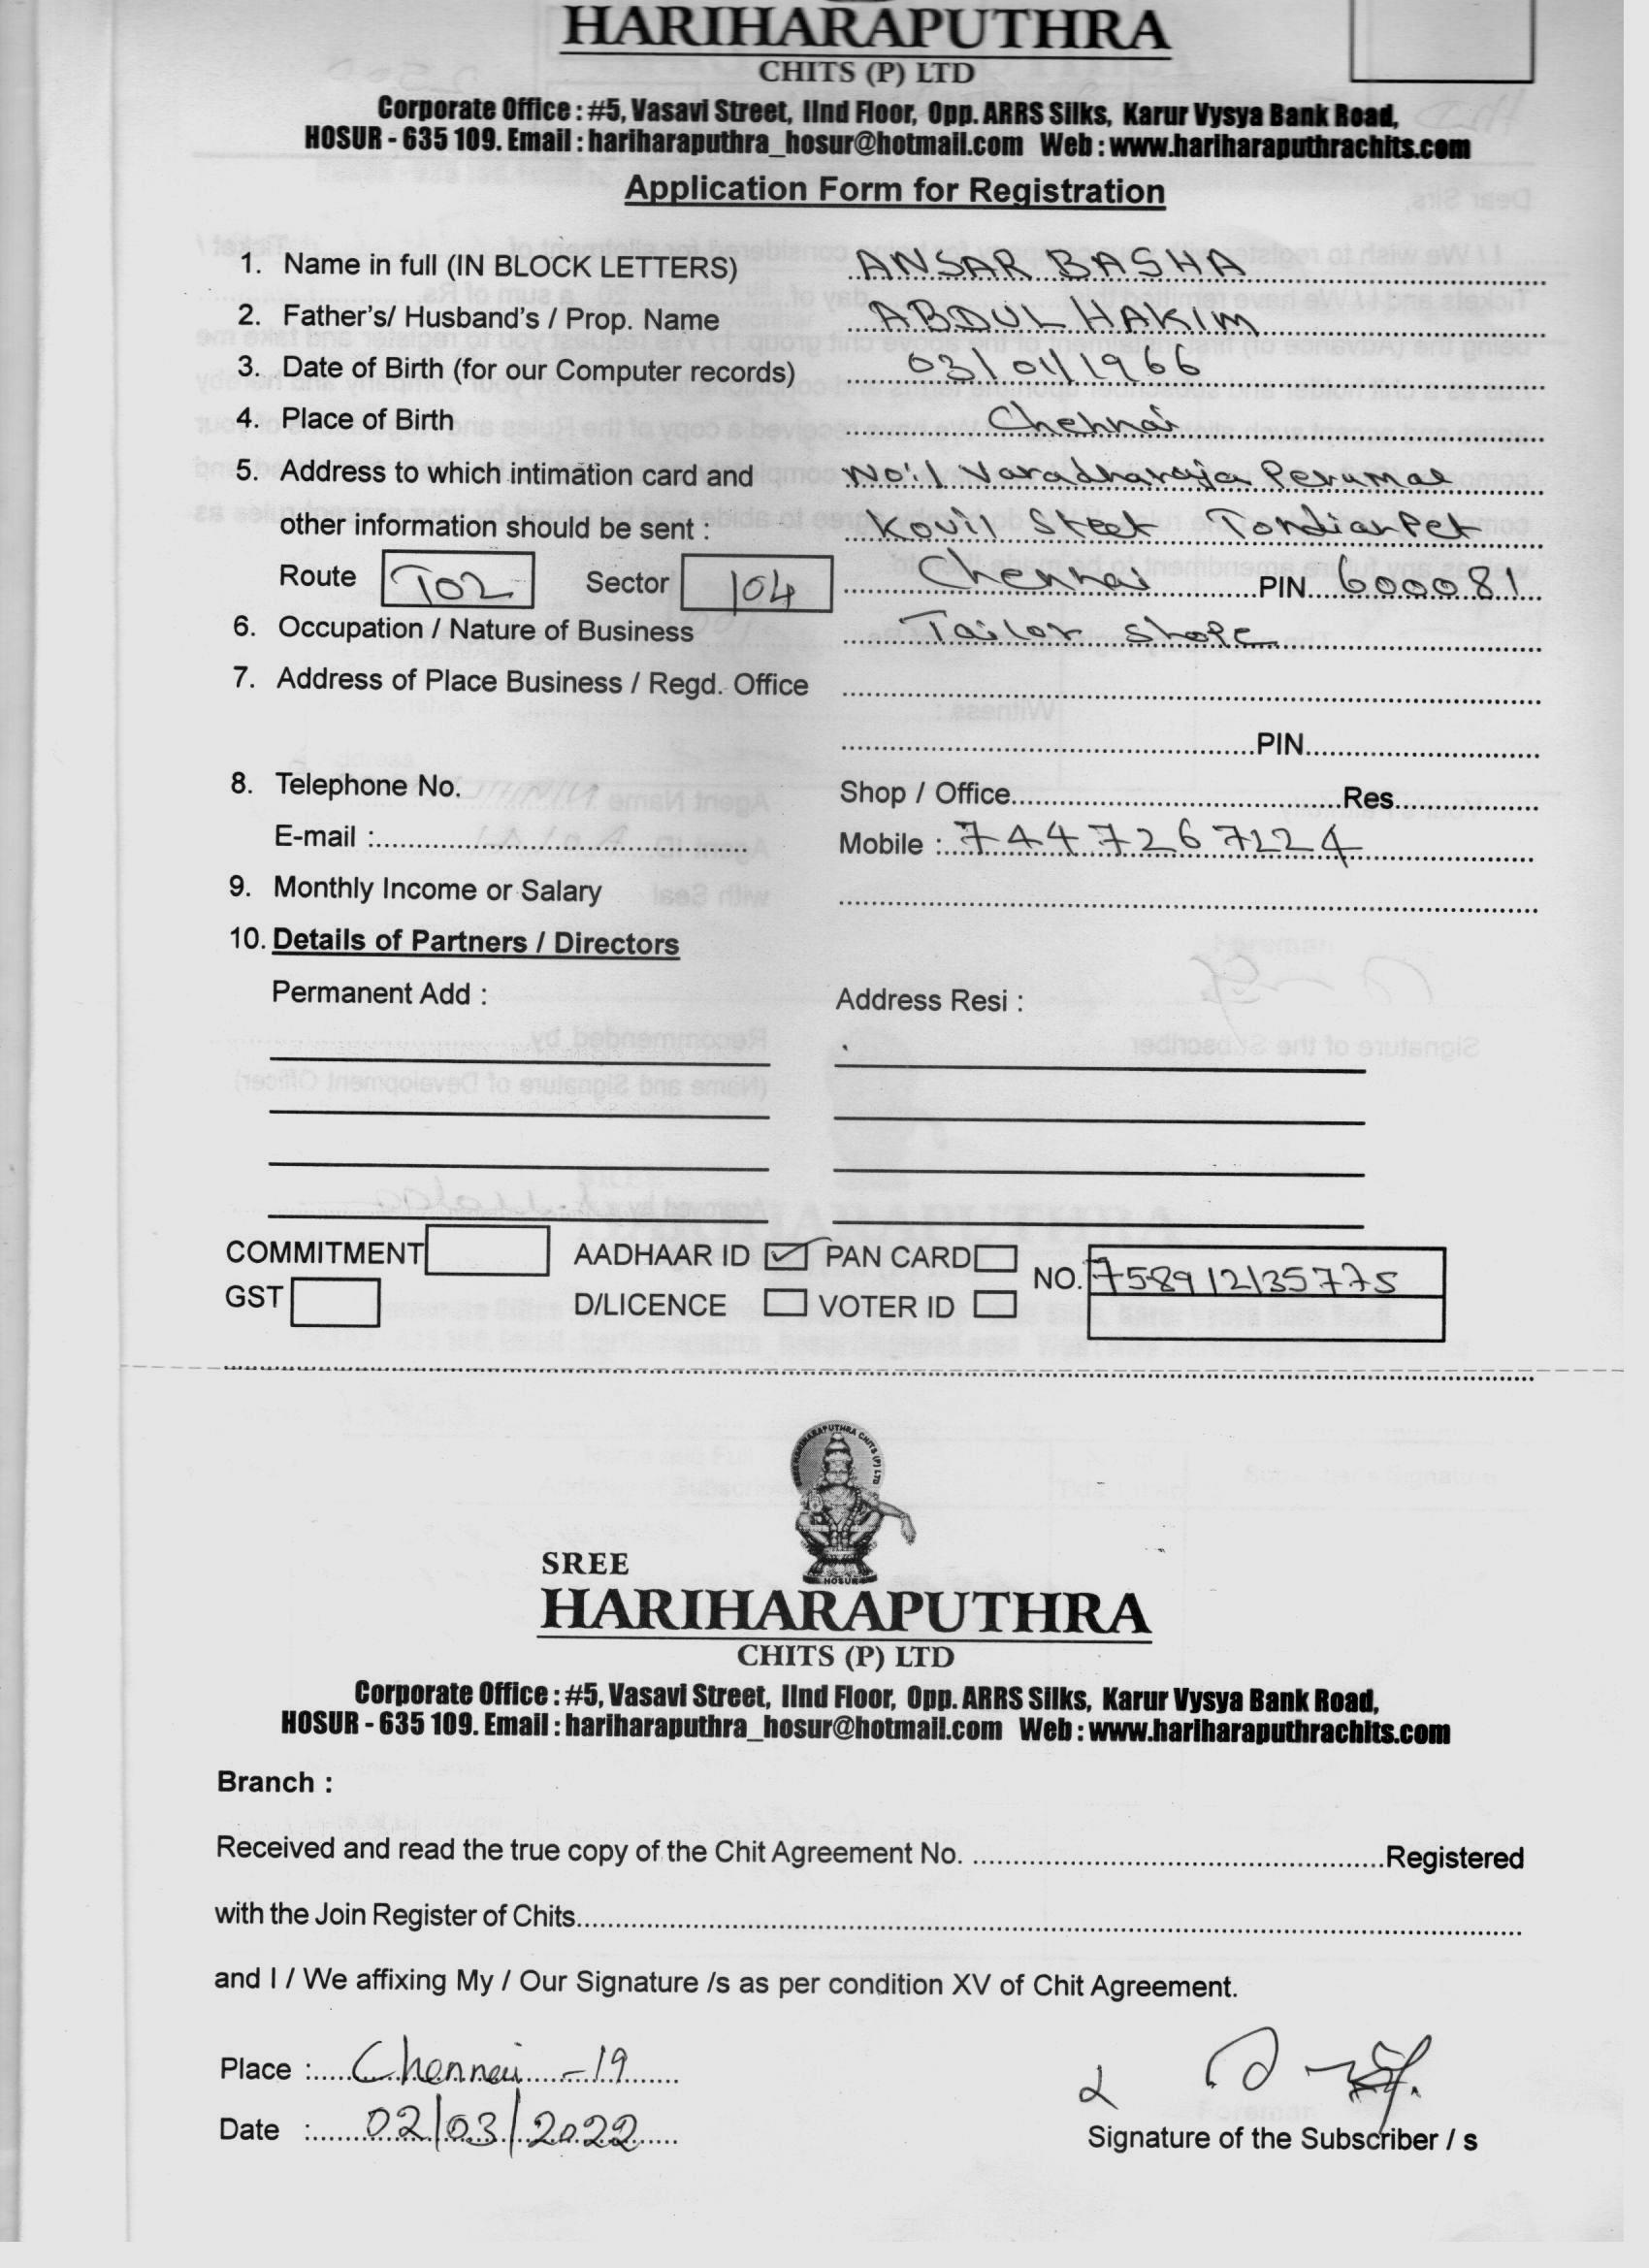 HARIHARAPUTHRA
CHITS (P) LTD
Corporate Office : #5, Vasavi Street, IInd Floor, Opp. ARRS Silks, Karur Vysya Bank Road,
HOSUR - 635 109. Email : hariharaputhra_hosur@hotmail.com Web : www.hariharaputhrachits.com
Application Form for Registration
1. Name in full (IN BLOCK LETTERS) ANSAR BASHA
2. Father's/ Husband's / Prop. Name ABDUL HAKIM
3. Date of Birth (for our Computer records) 03/01/1966
4. Place of Birth Chennai
5. Address to which intimation card and No:1 Varadharaja Perumal
other information should be sent : Kovil Steet TondiarPet
Route T02 Sector 104 Chennai PIN 600081
6. Occupation / Nature of Business Tailor Shope
7. Address of Place Business / Regd. Office
PIN
8. Telephone No. Shop / Office Res.
E-mail : Mobile : 7447267224
9. Monthly Income or Salary
10. Details of Partners / Directors
Permanent Add : Address Resi :
COMMITMENT AADHAAR ID PAN CARD NO. 758912135775
GST D/LICENCE VOTER ID
SREE
HARIHARAPUTHRA
CHITS (P) LTD
Corporate Office : #5, Vasavi Street, IInd Floor, Opp. ARRS Silks, Karur Vysya Bank Road,
HOSUR - 635 109. Email : hariharaputhra_hosur@hotmail.com Web : www.hariharaputhrachits.com
Branch :
Received and read the true copy of the Chit Agreement No. Registered
with the Join Register of Chits
and I / We affixing My / Our Signature /s as per condition XV of Chit Agreement.
Place : Chennai -19
Date : 02/03/2022
Signature of the Subscriber / s